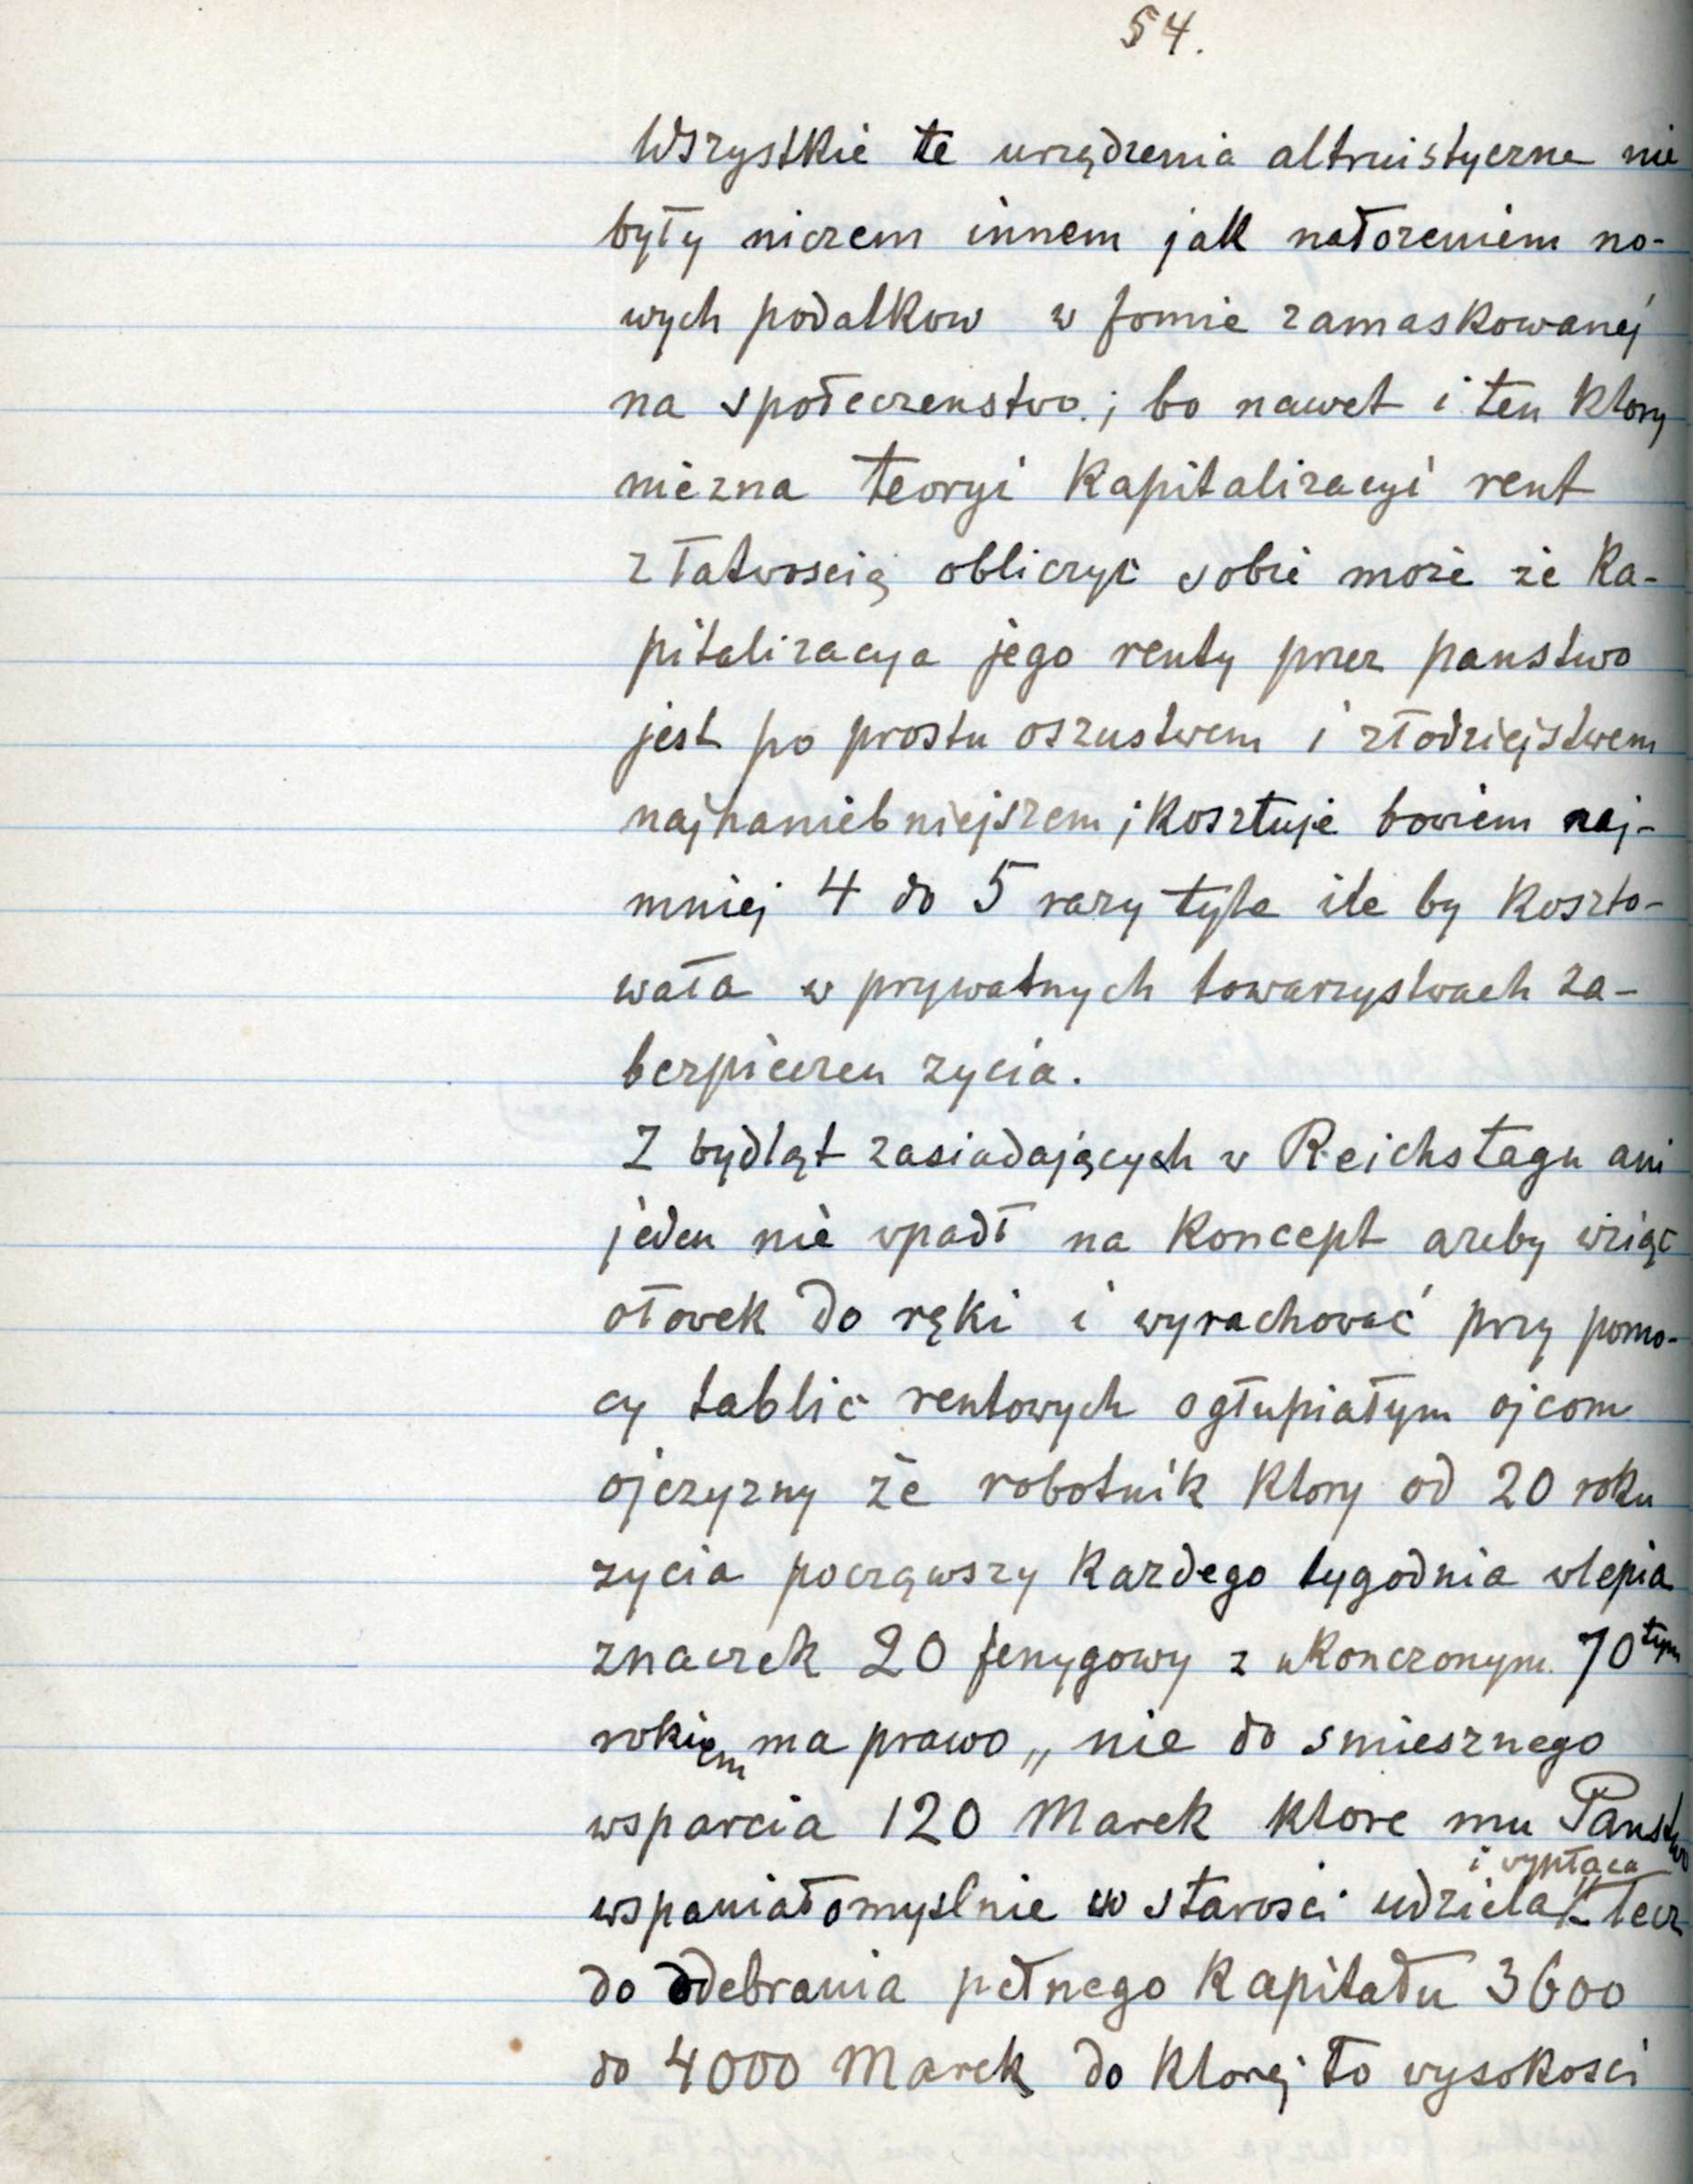 54.
Wszystkie te urządzenia altruistyczne nie
były niczem innem jak nałożeniem no-
wych podatkow w fomie zamaskowanej
na społeczenstwo; bo nawet i ten ktory
niezna teoryi Kapitalizacyi rent
z łatwoscią obliczyc sobie może że Ka-
pitalizacya jego renty przez panstwo
jest po prostu oszustwem i złodziejstwem
najhaniebniejszem; Kosztuje bowiem naj-
mniej 4 do 5 razy tyle ile by Koszto-
wała w prywatnych towarzystwach za-
bezpieczen zycia.
Z bydląt zasiadających w Reichstagu ani
jeden nie wpadł na Koncept azeby wziąc
ołowek do ręki i wyrachować przy pomo-
cy tablic rentowych ogłupiałym ojcom
ojczyzny że robotnik Ktory od 20 roku
zycia począwszy Kazdego tygodnia wlepia
znaczek 20 fenygowy z ukonczonym 70tym
rokiem ma prawo „nie do smiesznego
wsparcia 120 Marek Ktore mu Panstwo
wspaniałomyslnie w starosci udziela i wypłaca" lecz
do odebrania pełnego Kapitału 3600
do 4000 Marek do Ktorej to wysokosci